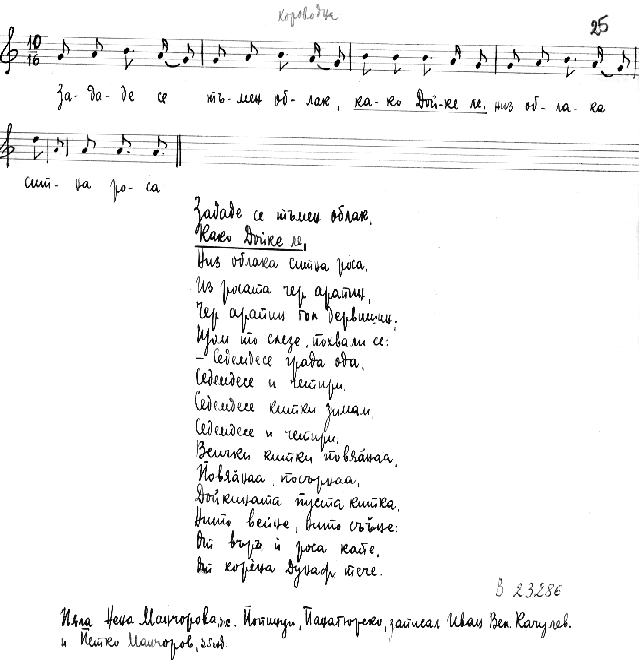 Хороводна
25
10
16
За-да-де се тъ-мен об-лак, ка-ко Дой-ке ле, низ об-ла-ка
сит-на ро-са
Зададе се тъмен облак,
Како Дойке ле,
Низ облака ситна роса,
Из росата чер арапин,
Чер арапин гол дервишин.
Щом то слезе, похвали се:
– Седемдесе града ода,
Седемдесе и четири.
Седемдесе китки зимам,
Седемдесе и четири.
Велички китки повяанаа,
Повяанаа, погорнаа,
Дойкината пуста китка,
Нито вейне, нито съхне:
От връх ѝ роса капе,
От корена Дунаф тече.
В 2328б
Пяла Нена Манчорова, ж. Попинци, Панагюрско, записал Иван Вел. Качулев.
и Петко Манчоров, 25 год.